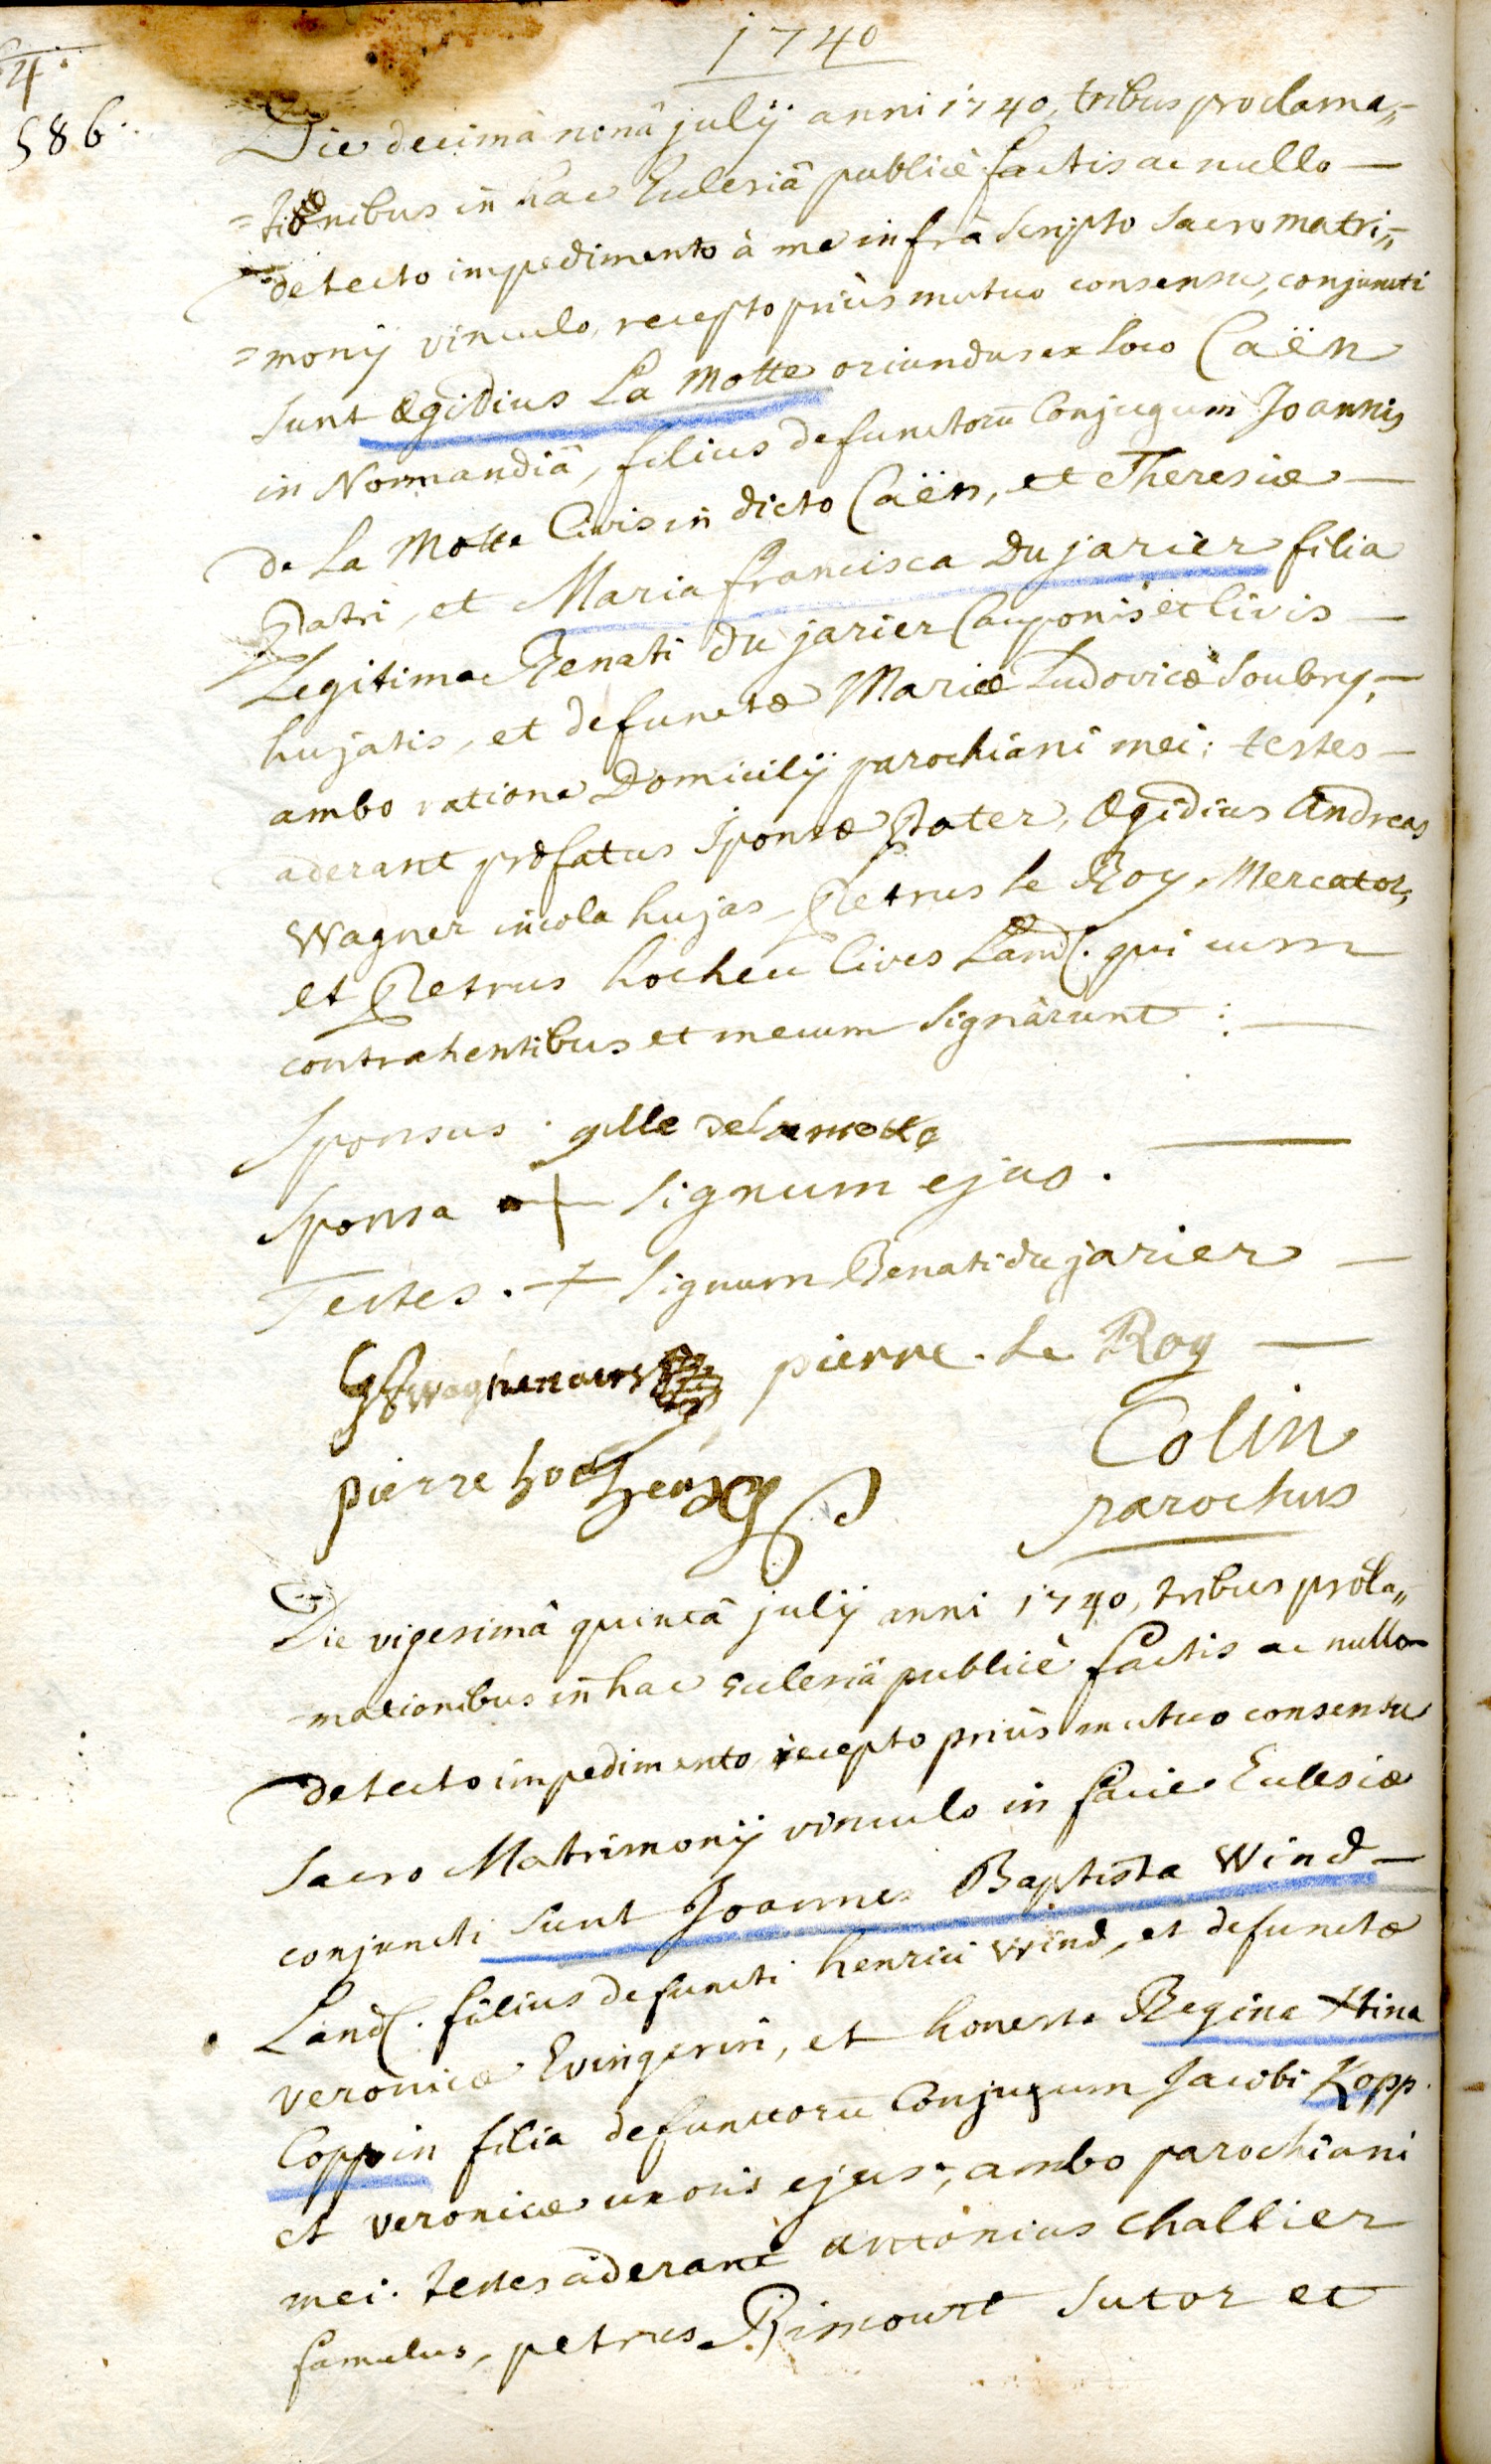 1740
4.
586.
Die decimâ nonâ julÿ anni 1740, tribus proclama„
=tionibus in hac Ecclesiâ publicè factis ac nullo —
detecto impedimento à me infrà scripto sacro matri„
=monÿ vinculo, recepto priùs mutuo consensu, conjuncti
sunt Ægidius La Motte oriundus ex loco Caën
in Normandiâ, filius defunctorū Conjugum Joannis
de La Motte Civis in dicto Caën, et Theresiæ —
Patri, et Maria francisca Du jarier filia
Legitima Renati du jarier Cauponis et Civis —
hujatis, et defunctæ Mariæ Ludovicæ Soubry, —
ambo ratione Domicilÿ parochiani mei: testes —
aderant præfatus sponsæ Pater, Ægidius Andreas
Wagner incola hujas, Petrus le Roy, Mercator,
et Petrus hocheu Cives Land. qui cum
contrahentibus et mecum signàrunt : —
Sponsus . gille delamotte —
Sponsa + signum ejus .
Testes . + signum Renati du jarier —
pierre . Le Roy —
pierre hocheu
Colin
parochus
Die vigesimâ quintâ julÿ anni 1740, tribus procla„
=mationibus in hac ecclesiâ publicè factis ac nullo
detecto impedimento, recepto priùs mutuo consensu
sacro Matrimonÿ vinculo in facie Ecclesiæ
conjuncti sunt Joannes Baptista Wind —
Land. filius defuncti henrici Wind, et defunctæ
veronicæ Evingerin, et honesta Regina Xtina
Coppin filia defunctorū Conjugum Jacobi Kopp.
et veronicæ uxoris ejus, ambo parochiani
mei. testes aderant antonius Challier
famulus, petrus Rimourt sutor et